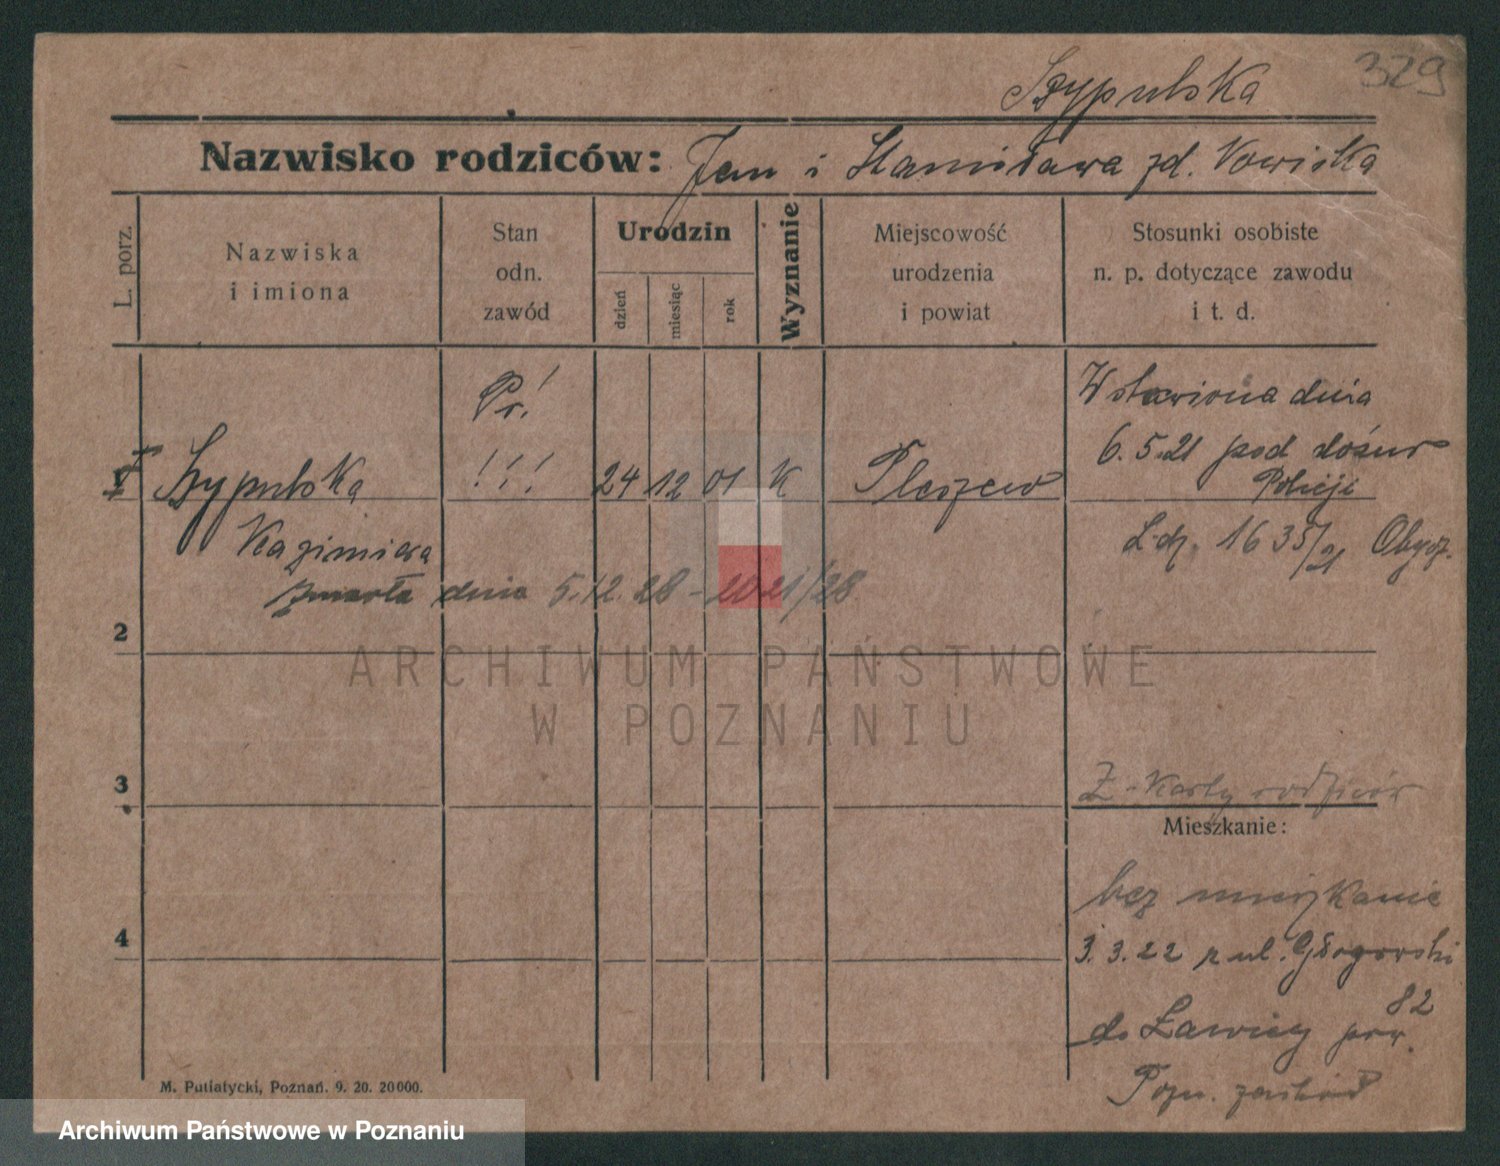 329
Szypulska
Nazwisko rodziców: Jan i Stanisława zd. Nowicka
L. porz.
Nazwiska
i imiona
Stan
odn.
zawód
Urodzin
dzień
miesiąc
rok
Wyznanie
Miejscowość
urodzenia
i powiat
Stosunki osobiste
n. p. dotyczące zawodu
i t. d.
Pr.!
!!!
Szypulska
Kazimiera
24 12 01 K Pleszew
Wstawiona dnia
6.5.21 pod dozur
Policji
L.dz. 1635/21 Obycz.
zmarła dnia 5.12.28 - 2021/28
2
ARCHIWUM PAŃSTWOWE
W POZNANIU
3
Z Karty rodziców
Mieszkanie:
bez mieszkanie
4
3.3.22 z ul. Głogowski
82
do Ławicy pow.
Pozn. zachód
M. Putiatycki, Poznań. 9. 20. 20000.
Archiwum Państwowe w Poznaniu